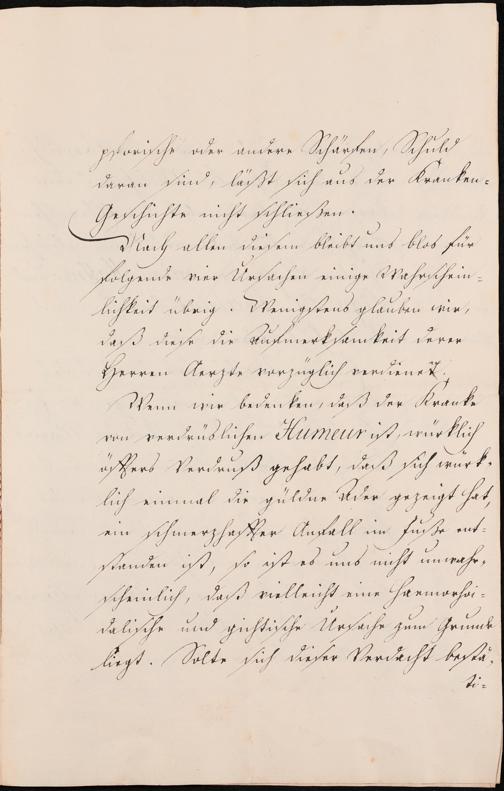 psorische oder andere Schärfen, Schuld
daran sind, läßt sich aus der Kranken=
Geschichte nicht schließen.
Nach allen diesem bleibt uns blos für
folgende vier Ursachen einige Wahrschein=
lichkeit übrig. Wenigstens glauben wir,
daß diese die Aufmerksamkeit derer
Herren Aerzte vorzüglich verdienet.
Wenn wir bedenken, daß der Kranke
von verdrüslichen Humeur ist, würklich
öfters Verdruß gehabt, daß sich würk=
lich einmal die güldne Ader gezeigt hat,
ein schmerzhafter Anfall im Fuße ent=
standen ist, so ist es uns nicht unwahr=
scheinlich, daß vielleicht eine haemorhoi=
dalische und gichtische Ursache zum Grunde
liegt. Solte sich dieser Verdacht bestä=
ti=